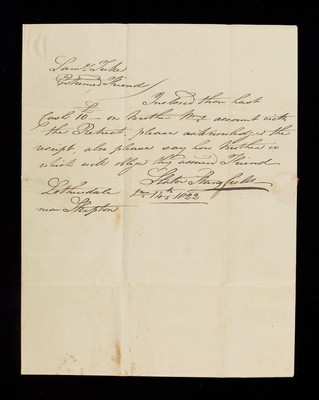 Saml Tuke
Esteemed Friend
Inclosed thou hast
Cash £10 — on Brother Wms account with
the Retreat, please acknowledge the
receipt, also please say how Brother is
which will oblige thy assured Friend
Stansfield
Lothersdale 14th 1822
near Skipton